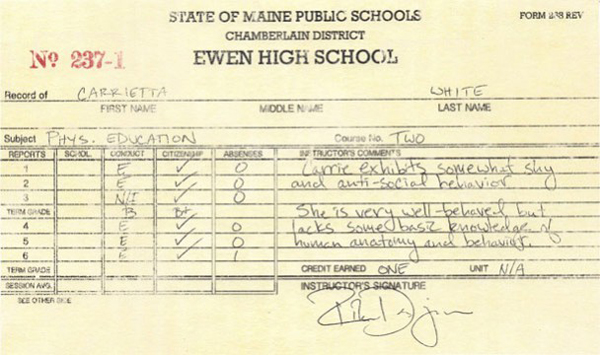 STATE OF MAINE PUBLIC SCHOOLS
FORM 238 REV
CHAMBERLAIN DISTRICT
No 237-1
EWEN HIGH SCHOOL
Record of CARRIETTA WHITE
FIRST NAME MIDDLE NAME LAST NAME
Subject PHYS. EDUCATION Course No. TWO
REPORTS SCHOL. CONDUCT CITIZENSHIP ABSENSES INSTRUCTOR'S COMMENTS
1 E ✓ 0 Carrie exhibits somewhat shy
2 E ✓ 0 and anti-social behavior
3 N/I ✓ 0
TERM GRADE B B+ She is very well-behaved but
4 E ✓ 0 lacks some basic knowledge of
5 E ✓ 0 human anatomy and behavior.
6 E ✓ 1
TERM GRADE CREDIT EARNED ONE UNIT N/A
SESSION AVG. INSTRUCTOR'S SIGNATURE
SEE OTHER SIDE